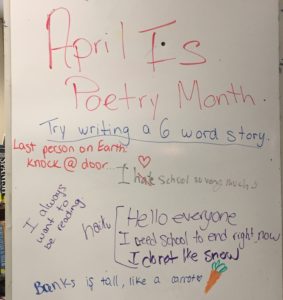 April Is
Poetry Month.
Try writing a 6 word story.
Last person on Earth
knock @ door...
I hate school so very much
I always
want to
be reading
haiku
Hello everyone
I need school to end right now
I do not like snow
Banks is tall, like a carrot